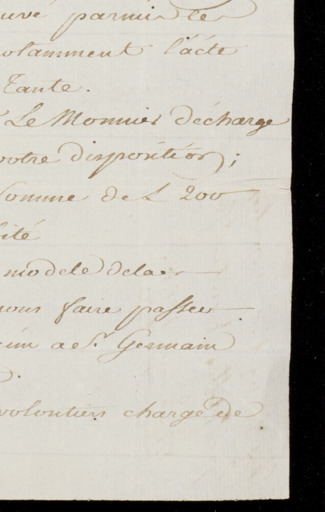 uvé parmi le
notamment l'acte
Tante.
Le Monnier décharge
votre disposition;
Somme de L 200
ité
modele dela
vous faire passer
a St. Germain
volontiers chargé de